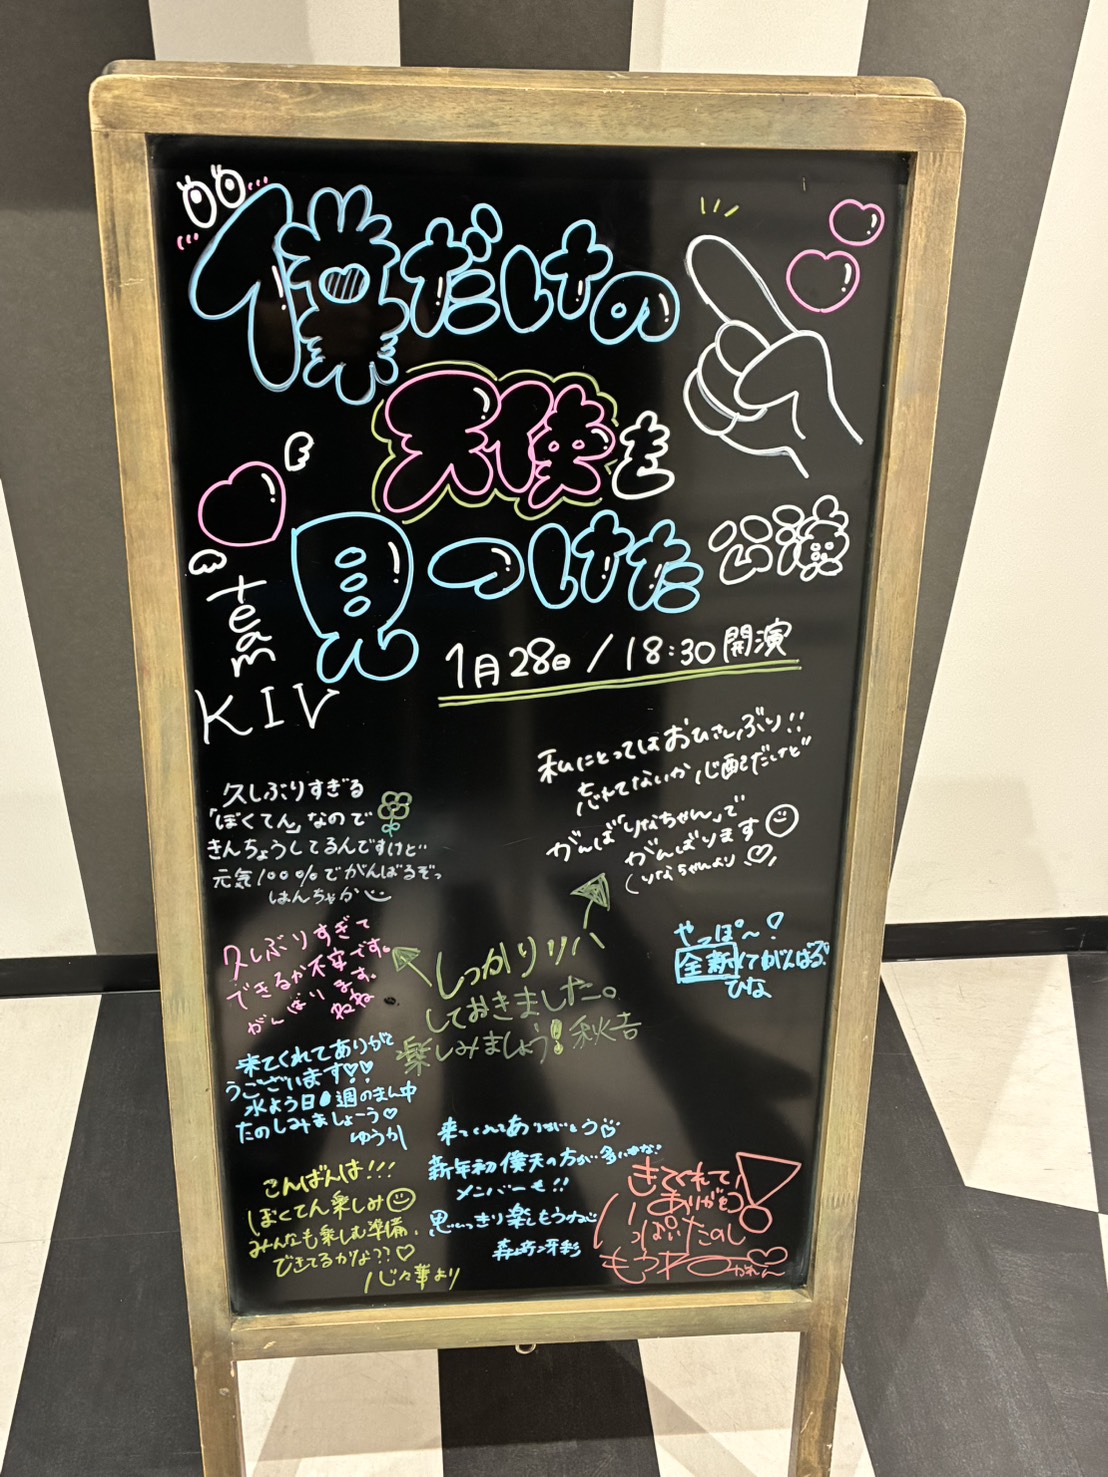 僕だけの
天使を
見つけた公演
team
KIV
1月28日/18:30開演
私にとってはおひさしぶり!!
忘れてないか心配だけど
がんば「りなちゃん」で
がんばります
りなちゃんより
久しぶりすぎる
「ぼくてん」なので
きんちょうしてるんですけど…
元気100%でがんばるぞっ
はんちゃか
久しぶりすぎて
できるか不安です。
がんばります。
ねね
しっかりッッ
しておきました。
楽しみましょう!秋吉
やっぽ〜!
全新くてがんばるぞ
ひな
来てくれてありがと
うございます♡♡
水よう日 週のまん中
たのしみましょーう♡
ゆうか
こんばんは!!!
ぼくてん楽しみ
みんなも楽しむ準備、
できてるかな??♡
心々華より
来てくれてありがとう
新年初僕天の方が多いかな?
メンバーも!!
思いっきり楽しもうね
きてくれて
ありがとう
いっぱいたのし
もうね
かれん